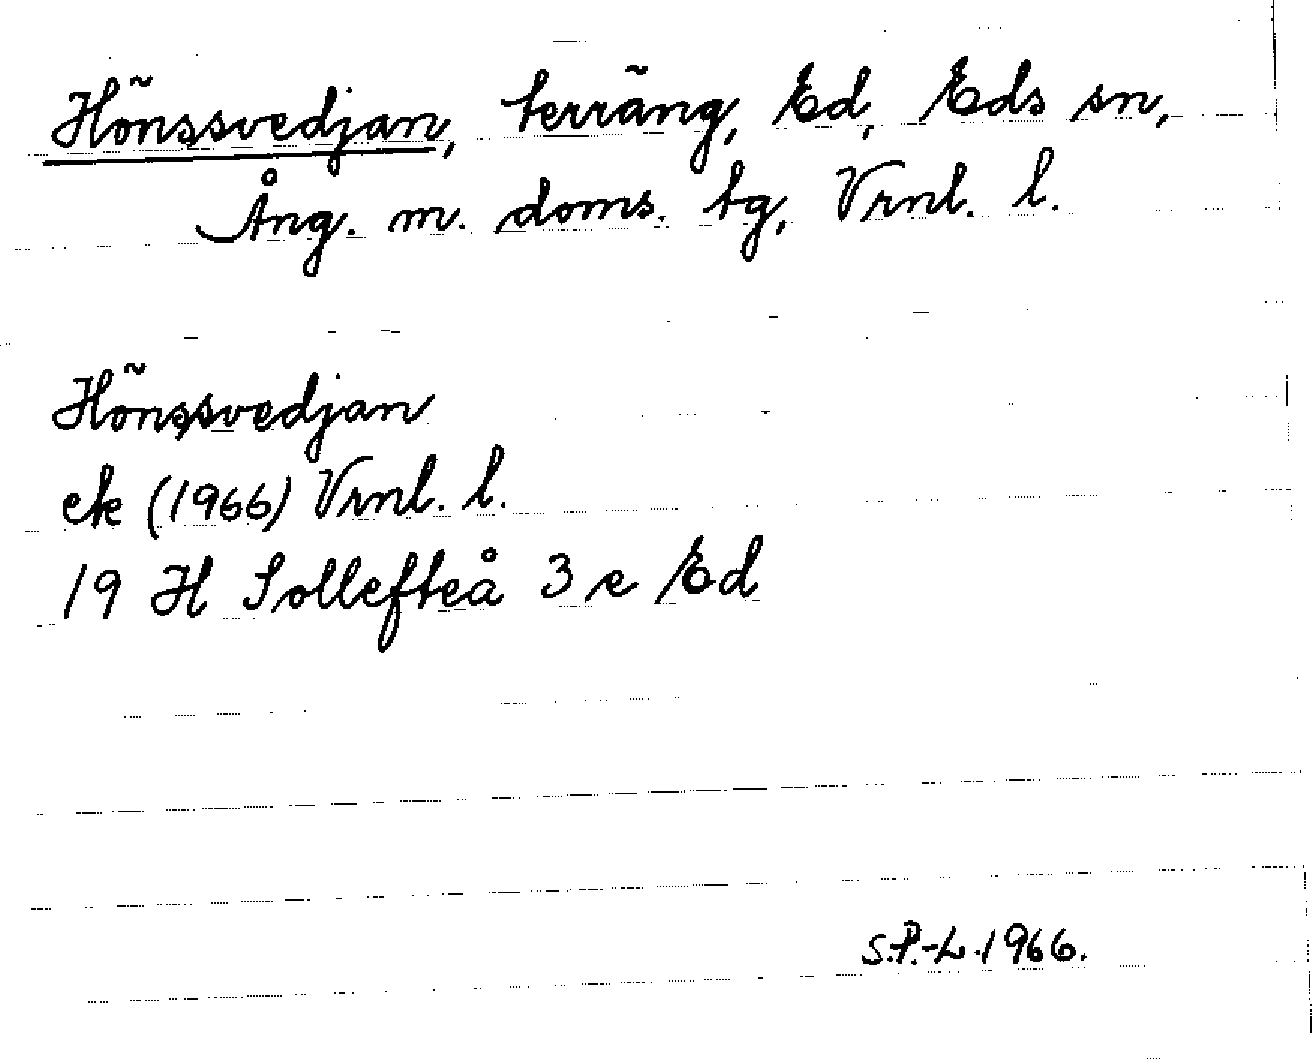 Hönssvedjan, terräng, Ed, Eds sn,
Ång. m. doms. tg, Vrnl. l.
Hönssvedjan
ek (1966) Vrnl. l.
19 H Sollefteå 3 e Ed
S.P.-L. 1966.